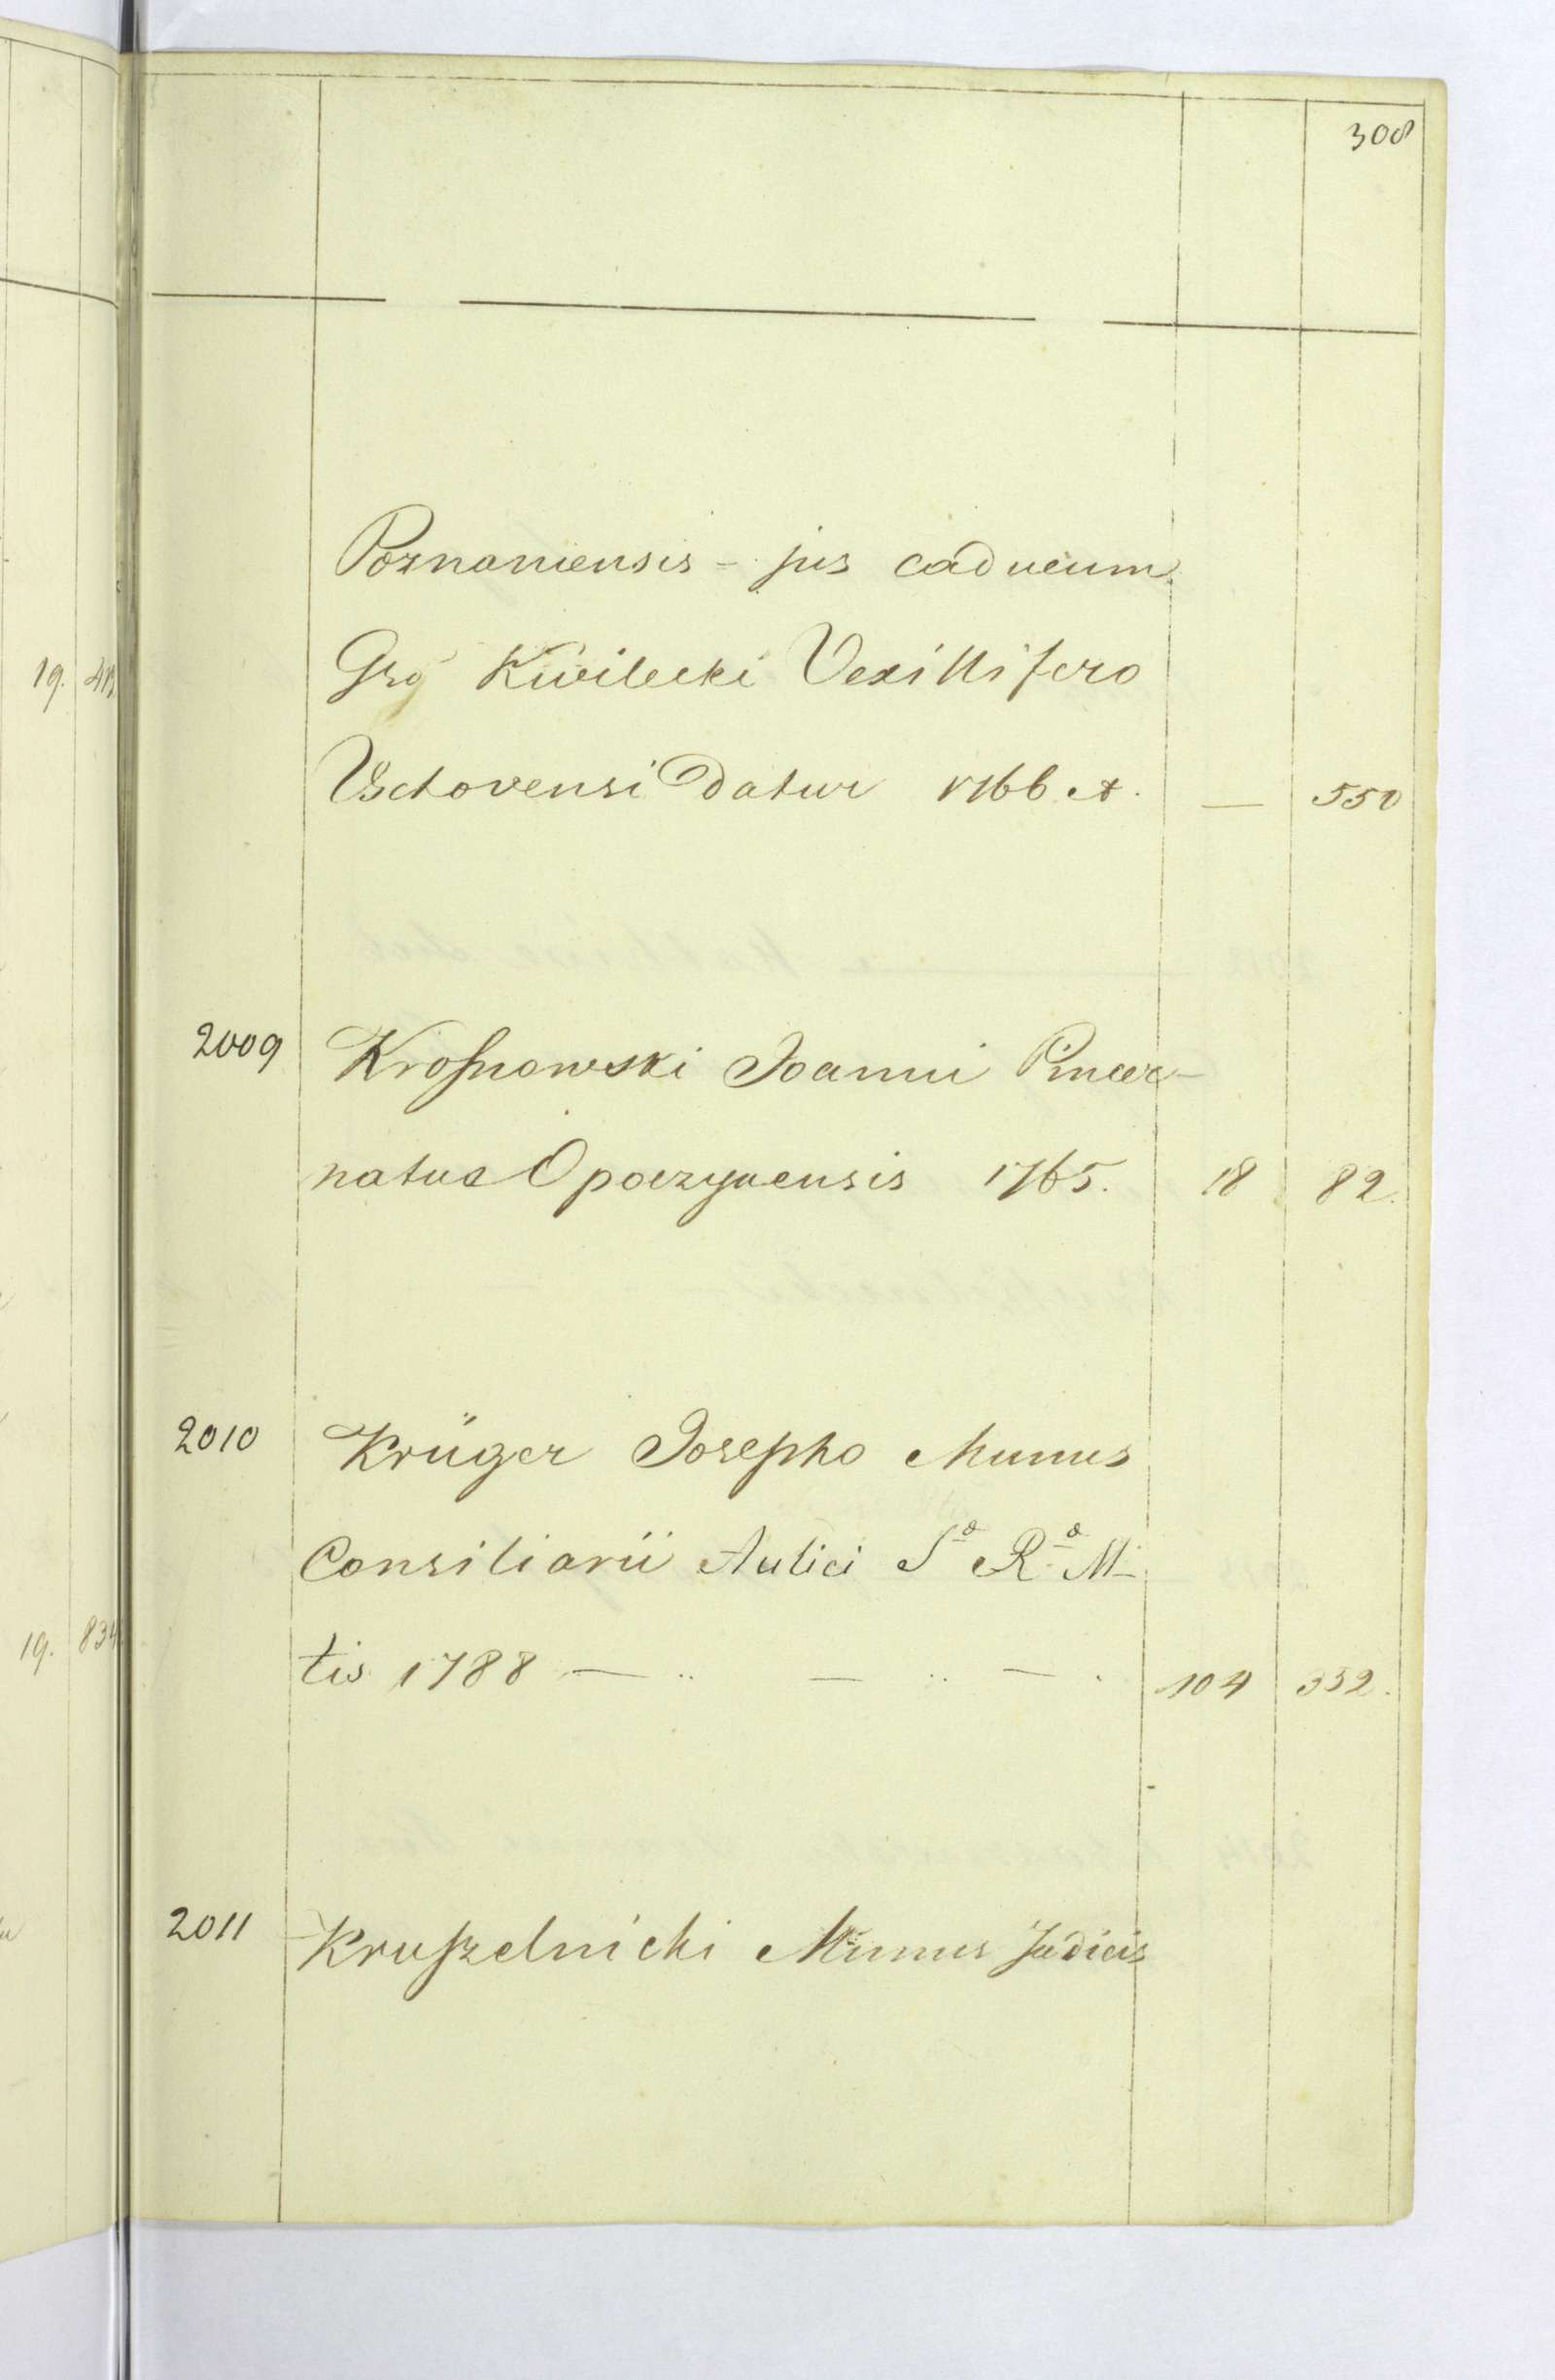 308
Poznaniensis - jus caducum
Gro Kwilecki Vexillifero
Vschovensi datur 1766 A. — 550
2009 Krosnowski Joanni Pincer-
natus Opoczynensis 1765. 18 82.
2010 Krüger Josepho Munus
Consiliarii Aulici Sª Rª M-
tis 1788 — .. — .. — . 104 352.
2011 Kruszelnicki Munus Judicis
19.
19. 834